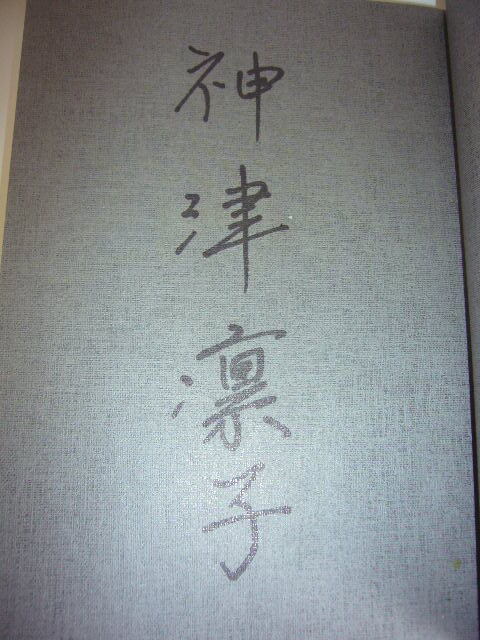 神津凛子